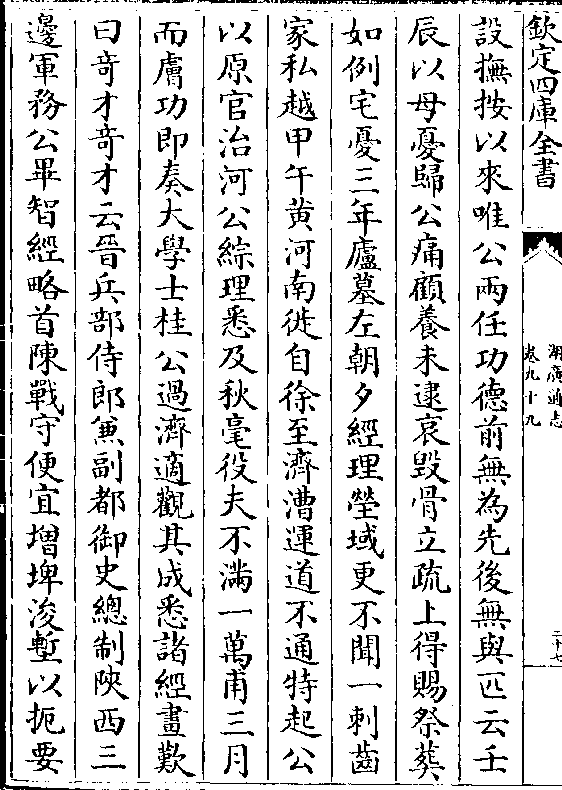 欽定四庫全書
湖廣通志
卷九十九
二十七
設撫按以來唯公兩任功德前無為先後無與匹云壬
辰以母憂歸公痛顧養未逮哀毀骨立疏上得賜祭葬
如例宅憂三年廬墓左朝夕經理塋域更不聞一刺齒
家私越甲午黄河南徙自徐至濟漕運道不通特起公
以原官治河公綜理悉及秋毫役夫不滿一萬甫三月
而膚功即奏大學士桂公過濟適觀其成悉諸經畫歎
曰竒才竒才云晉兵部侍郎兼副都御史總制陜西三
邊軍務公畢智經略首陳戰守便宜增埤浚塹以扼要